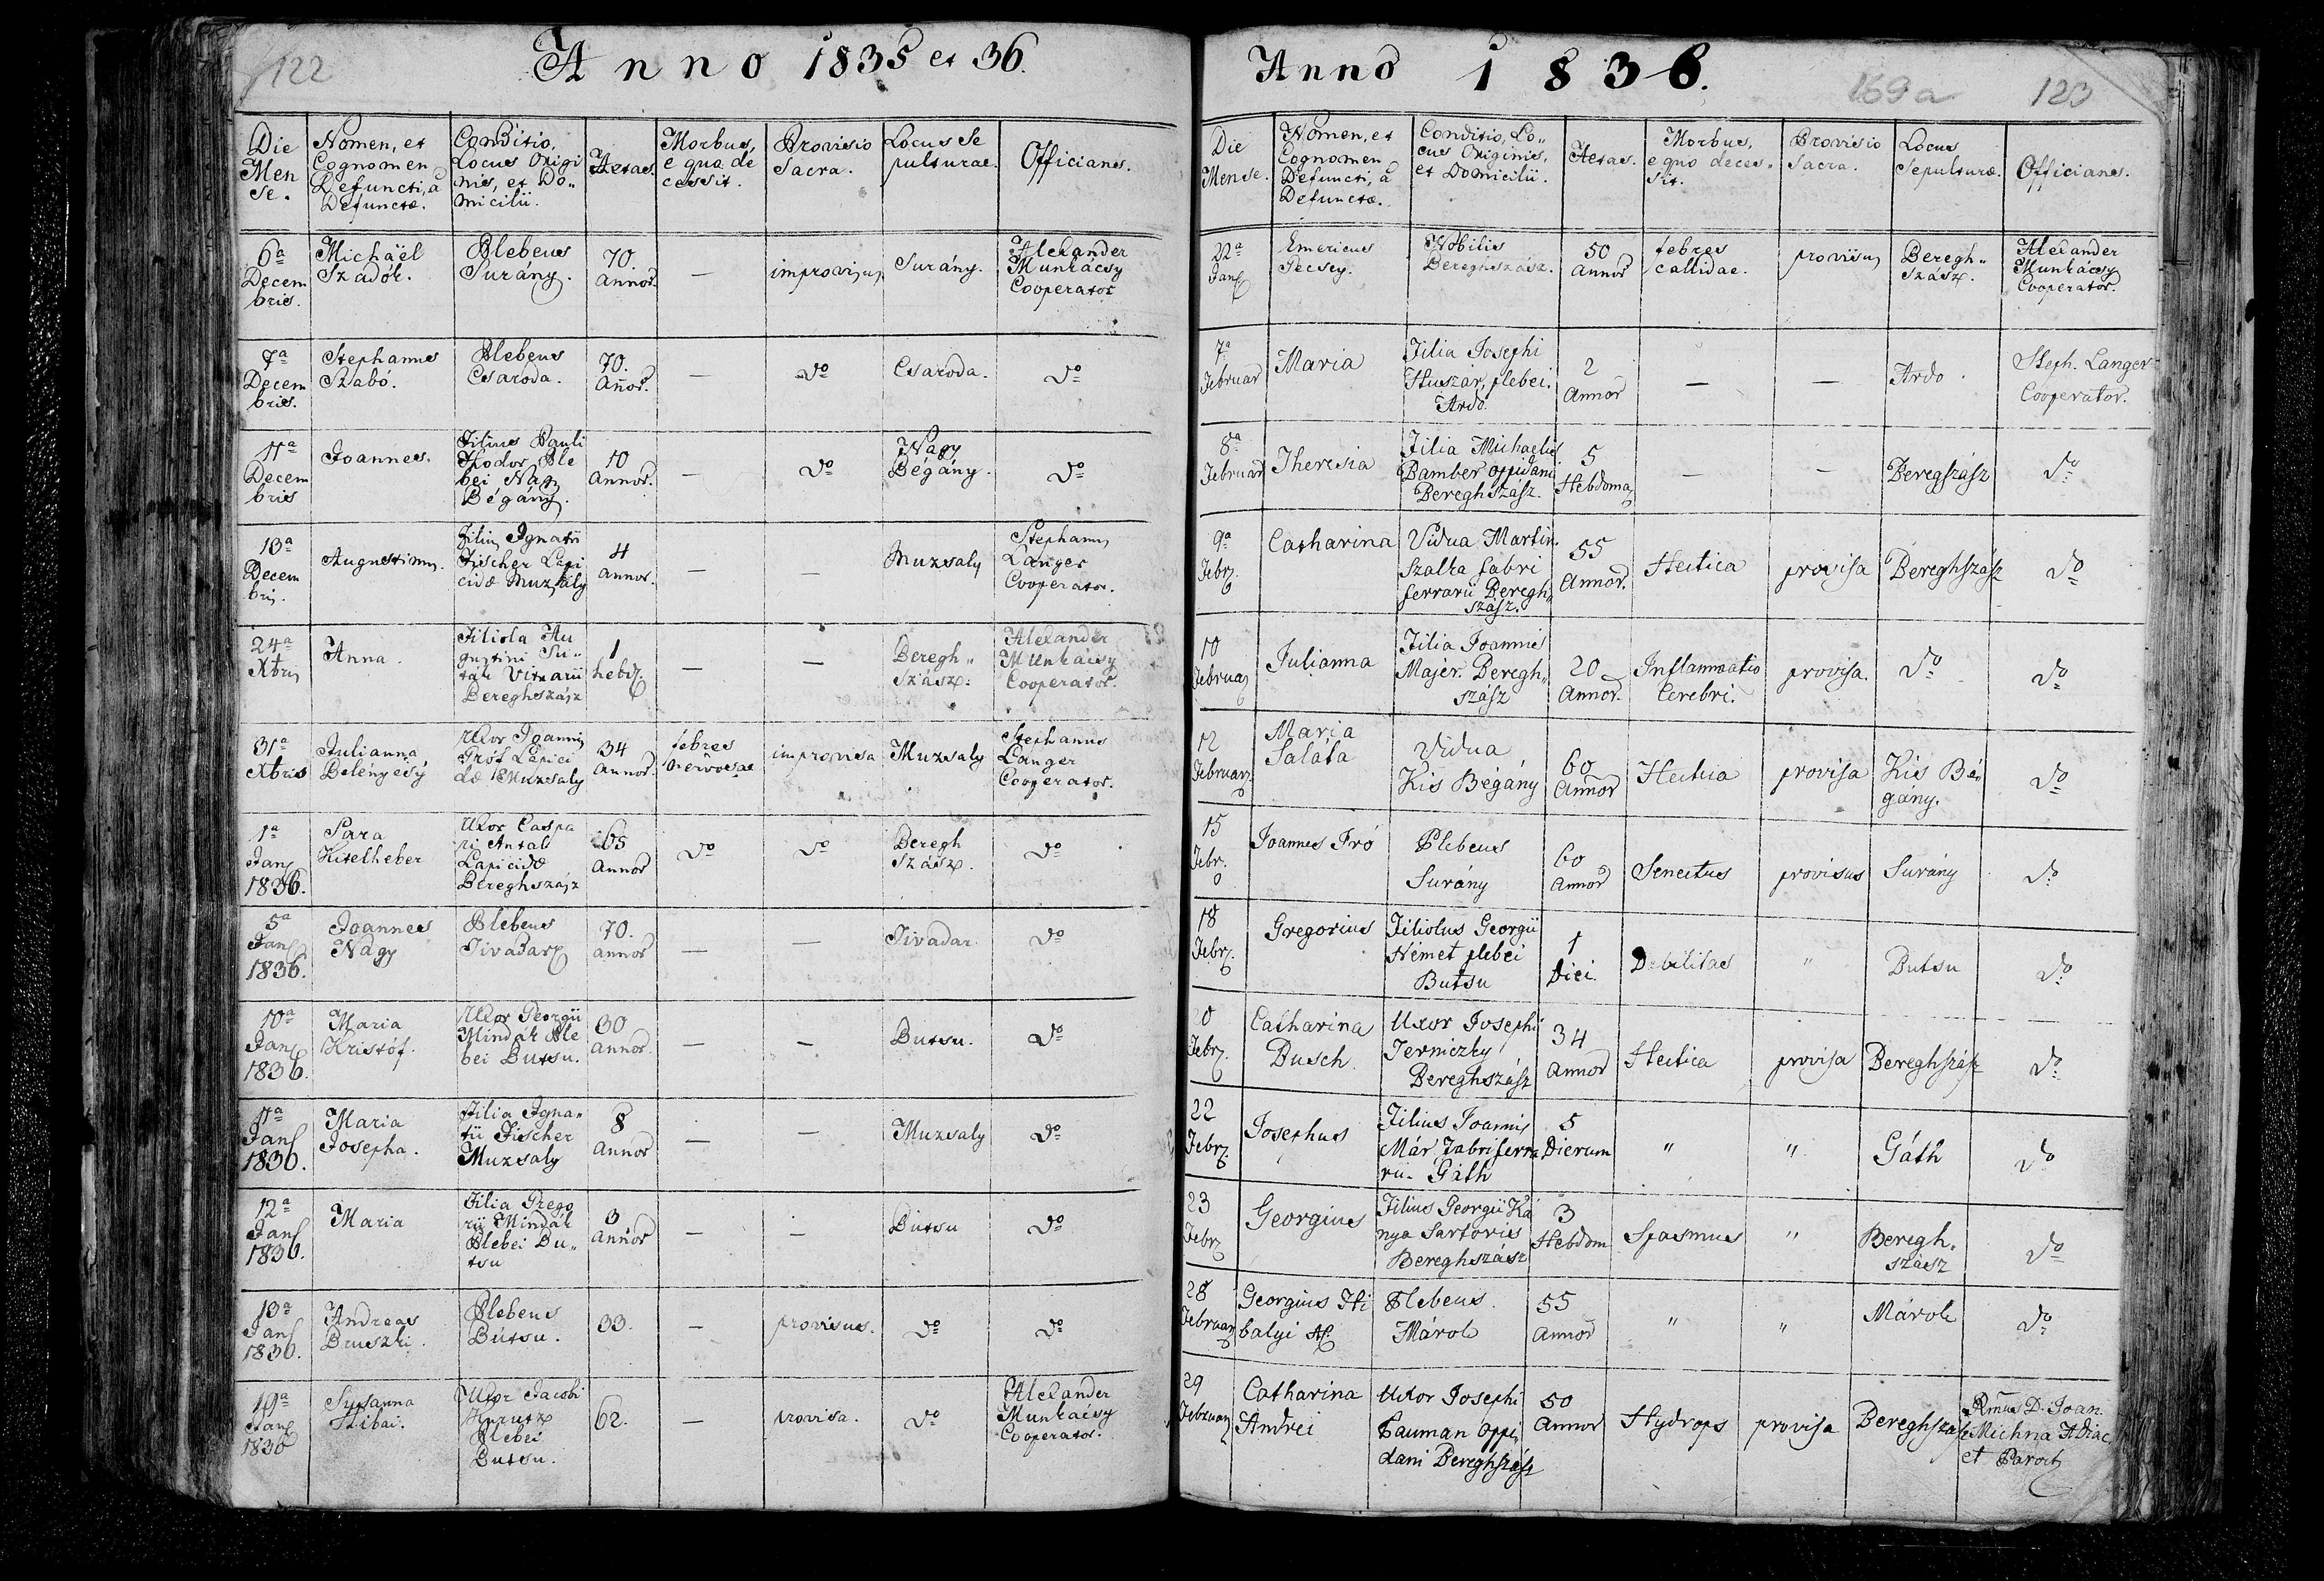 122
Anno 1835 et 36.
Die
Men
se.
Nomen, et
Cognomen
Defuncti, a
Defunctæ.
Conditio,
Locus Origi
nis, et Do„
micilii.
Aetas.
Morbus,
e quo de
cessit.
Provisio
Sacra.
Locus Se
pulturae.
Officians.
6a
Decem
bris.
Michaël
Szadók.
Plebeus
Surány.
70.
Annor.
—
improvisus
Surány.
Alexander
Munkácsy
Cooperator
7a
Decem
bris.
Stephanus
Szabó.
Plebeus
Csaroda.
70.
Añor.
—
do
Csaroda.
do
11a
Decem
bris
Joannes.
Filius Pauli
Thodor Ple
bei Nagy
Bégány.
10
Annor.
—
do
Nagy
Bégány.
do
13a
Decem
bris.
Augustinus.
Filius Ignatii
Fischer Lapi
cidæ Muzsaly
4
Annor.
—
—
Muzsaly
Stephanus
Langer
Cooperator.
24a
Xbris
Anna.
Filiola Au
gustini
Vitrarii
Bereghszász
1
hebd.
—
—
Beregh„
szász.
Alexander
Munkácsy
Cooperator.
31a
Xbris
Julianna
Belényesÿ
Uxor Joannis
Gróf Lapici
dæ Muzsaly
34
Annor.
febres
nervosae
improvisa
Muzsaly
Stephanus
Langer
Cooperator.
1a
Jan
1836.
Sara
Kitelheber
Uxor Caspa
ri Antali
Lapicidæ
Bereghszász
65
Annor
do
do
Beregh
szász.
do
5a
Jan
1836.
Joannes
Nagy
Plebeus
Tivadar
70.
annor
—
—
Tivadar
do
10a
Jan
1836.
Maria
Kristóf.
Uxor Georgii
Mindák Ple
bei Butsu.
30
annor.
—
—
Butsu.
do
11a
Jan
1836.
Maria
Josepha.
Filia Igna„
tii Fischer
Muzsaly
8
Annor
—
—
Muzsaly
do
12a
Jan
1836.
Maria
Filia Grego
rii Mindák
Plebei Bu„
tsu
3
Annor
—
—
Butsu
do
13a
Jan
1836.
Andreas
Bruszki.
Plebeus
Butsu.
33.
—
provisus.
do
do
19a
Jan
1836
Susanna
Hibai.
Uxor Jacobi
Plebei
Butsu.
62.
—
provisa.
do
Alexander
Munkácsy
Cooperator.
Anno 1836.
169a
123
Die
Mense.
Nomen, et
Cognomen
Defuncti, a
Defunctæ.
Conditio, Lo„
cus Originis,
et Domicilii.
Aetas.
Morbus,
e quo deces„
sit.
Provisio
Sacra.
Locus
Sepulturæ.
Officians.
22a
Jan
Emericus
Pecsey.
Nobilis
Bereghszász.
50
Annor
febres
callidae.
provisus
Beregh„
szász.
Alexander
Munkácsy
Cooperator.
7a
Februar
Maria
Filia Josephi
Huszár, plebei.
Ardo.
2
Annor
—
—
Ardo.
Steph. Langer
Cooperator.
8a
Februar
Theresia
Filia Michaelis
Bamber oppidani
Bereghszász.
5
Hebdoma
—
—
Beregszász
do
9a
Febr.
Catharina
Vidua Martin.
Szalka fabri
ferrarii Beregh„
szász.
55
Annor.
Hectica
provisa
Bereghszász
do
10
Februar
Julianna
Filia Joannis
Majer. Beregh„
szász
20
Annor.
Inflammatio
Cerebri.
provisa.
do
do
12
Februar
Maria
Saláta
Vidua
Kis Bégány
60
Annor
Hectica
provisa
Kis Bé„
gány.
do
15
Febr.
Joannes Iró
Plebeus
Surány
60
Annor
Senectus
provisus
Surány
do
18
Febr.
Gregorius
Filiolus Georgii
Német plebei
Butsu
1
Diei.
Debilitas
"
Butsu
do
20
Febr.
Catharina
Busch.
Uxor Josephi
Terniczky
Bereghszász
34
Annor
Hectica
provisa
Bereghszász
do
22
Febr.
Josephus
Filius Joannis
Már Fabri ferra
rii. Gáth
5
Dierum
"
"
Gáth
do
23
Febr
Georgius
Filius Georgii Ka
nya Sartoris
Bereghszász
3
Hebdom
Spasmus
"
Beregh„
szász
do
28
Februar
Georgius Hi
balyi
Plebeus.
Márok
55
Annor
"
"
Márok
do
29
Februar
Catharina
Andrei
Uxor Josephi
Pauman Oppi„
dani Bereghszász
50
Annor
Hydrops
provisa
Bereghszász
Rmus D. Joan.
Michna ADiac.
et Paroch